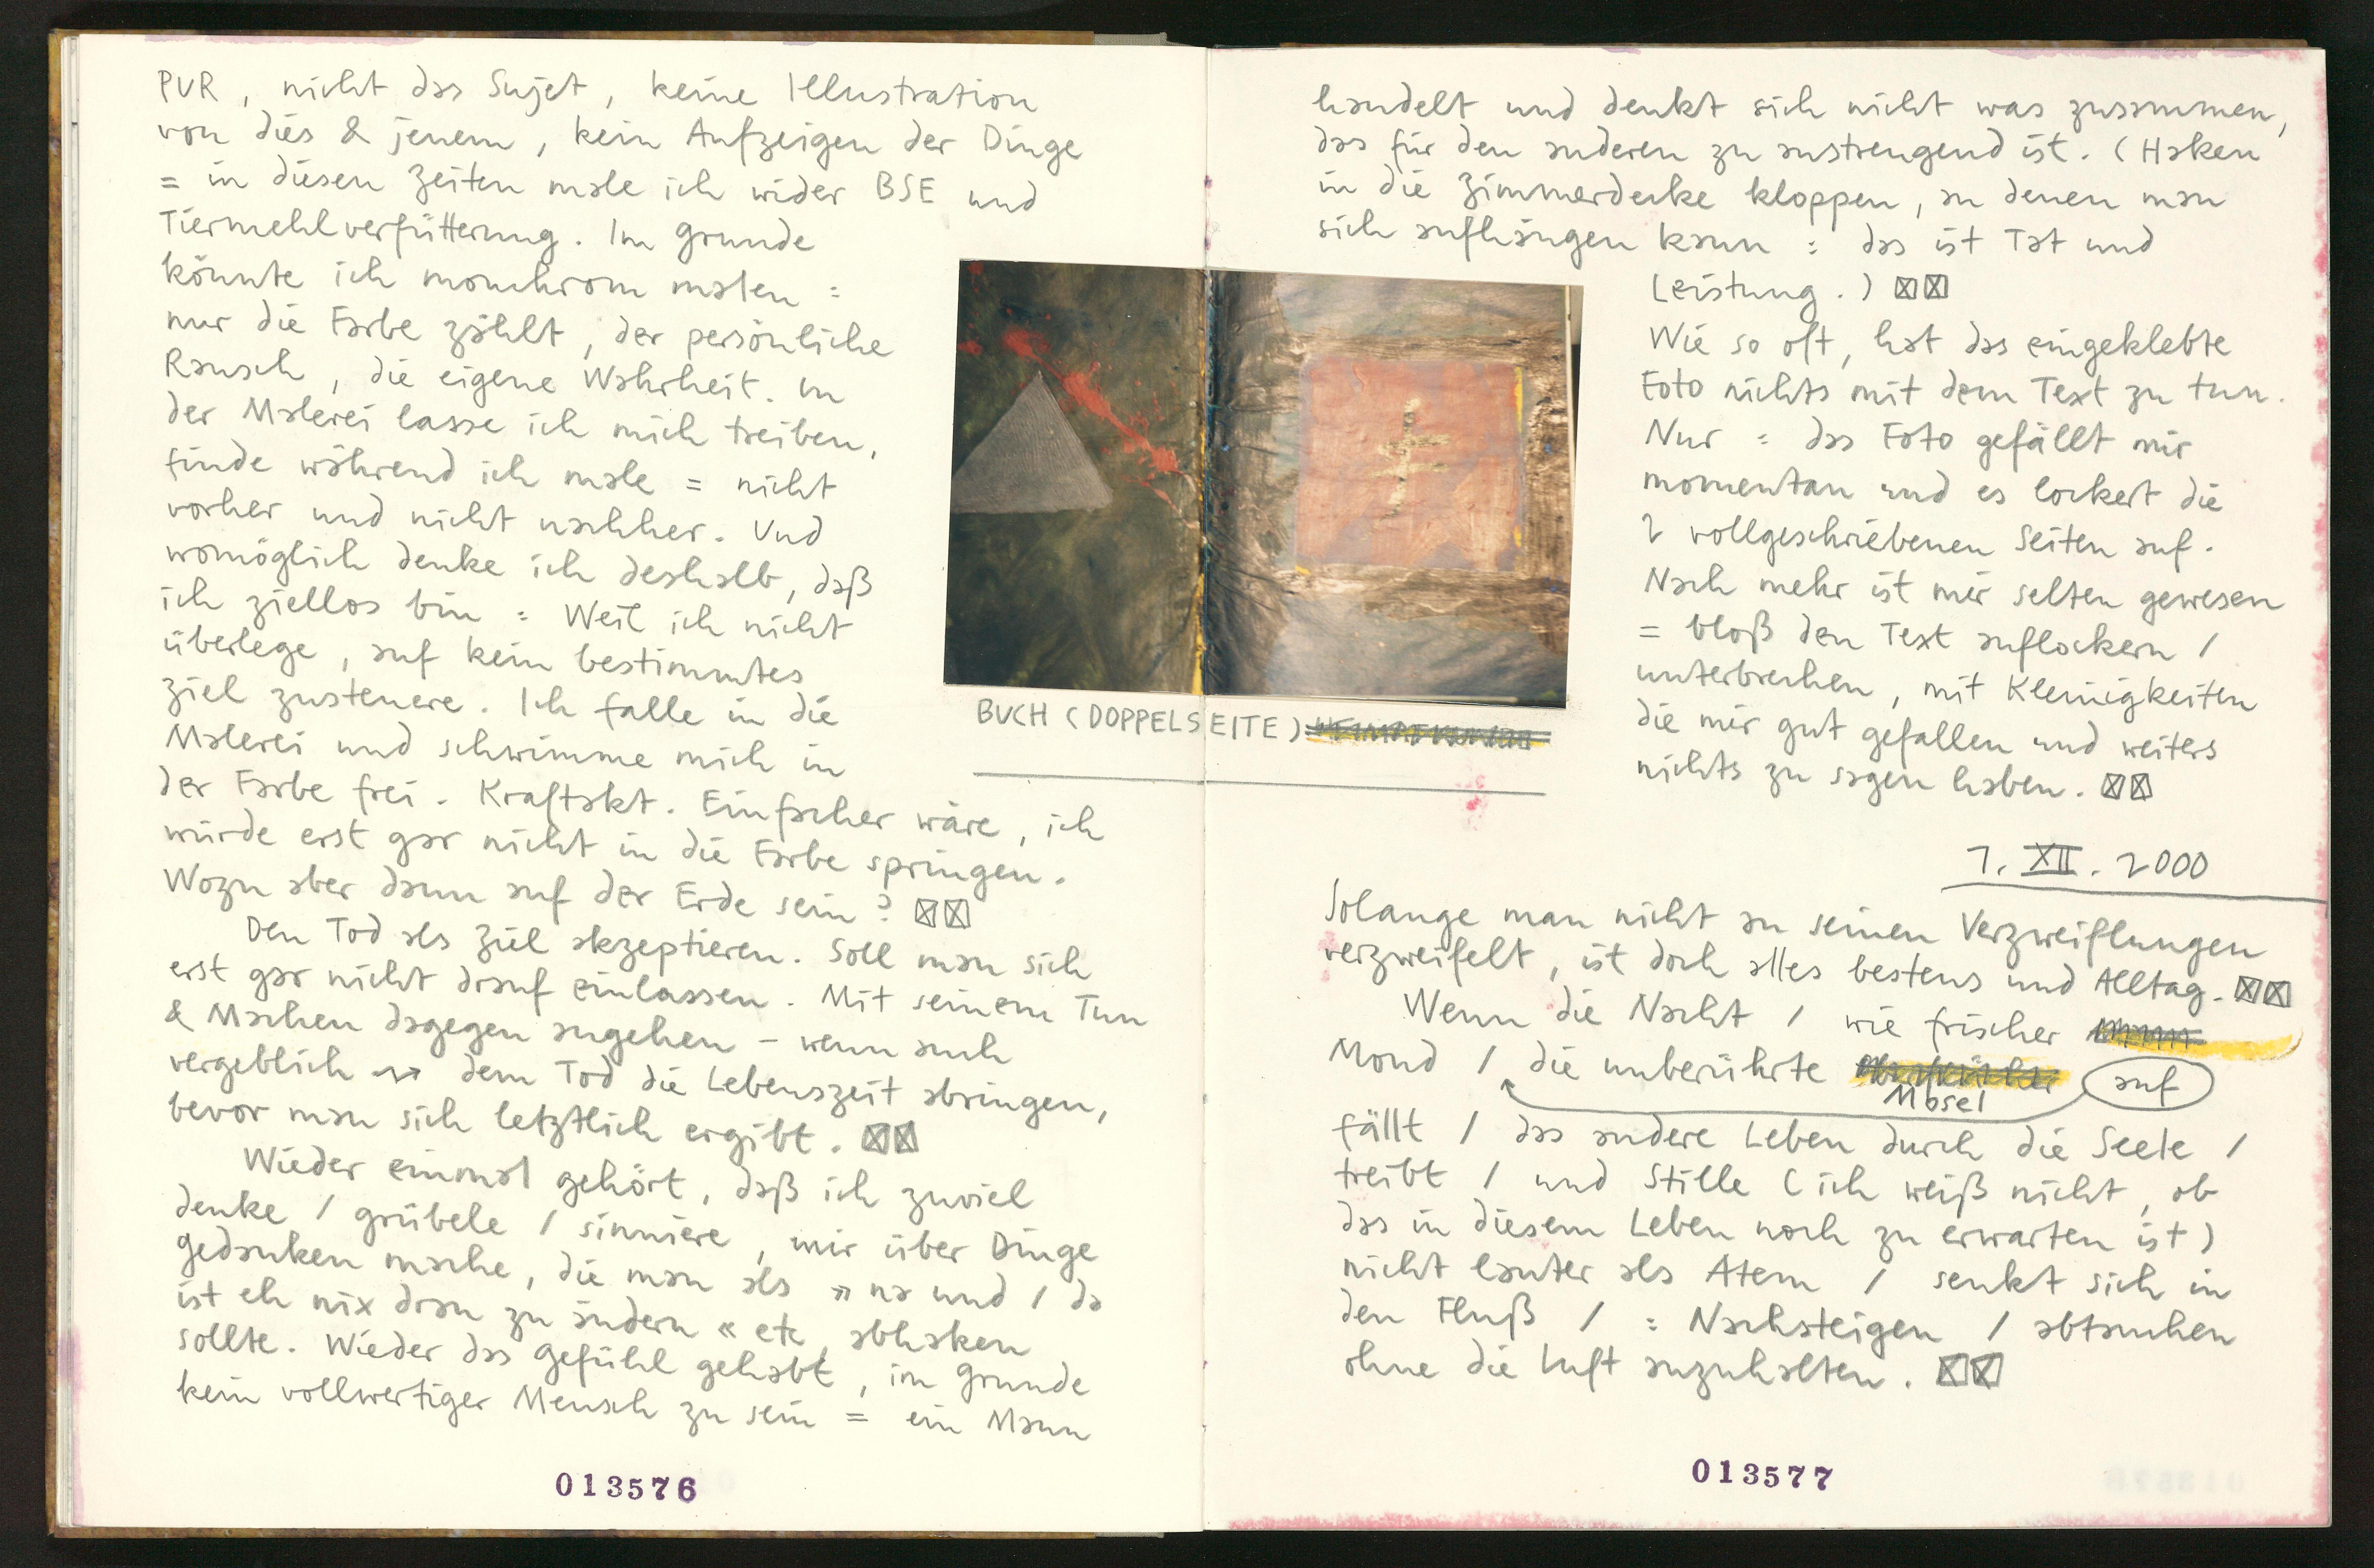 PUR, nicht das Sujet, keine Illustration
von dies & jenem, kein Aufzeigen der Dinge
= in diesen Zeiten male ich wider BSE und
Tiermehlverfütterung. Im Grunde
könnte ich monchrom malen =
nur die Farbe zählt, der persönliche
Rausch, die eigene Wahrheit. In
der Malerei lasse ich mich treiben,
finde während ich male = nicht
vorher und nicht nachher. Und
womöglich denke ich deshalb, daß
ich ziellos bin = Weil ich nicht
überlege, auf kein bestimmtes
Ziel zusteuere. Ich falle in die
Malerei und schwimme mich in
der Farbe frei. Kraftakt. Einfacher wäre, ich
würde erst gar nicht in die Farbe springen.
Wozu aber dann auf der Erde sein? ☒☒
Den Tod als Ziel akzeptieren. Soll man sich
erst gar nicht drauf einlassen. Mit seinem Tun
& Machen dagegen angehen – wenn auch
vergeblich ⇝ dem Tod die Lebenszeit abringen,
bevor man sich letztlich ergibt. ☒☒
Wieder einmal gehört, daß ich zuviel
denke / grübele / sinniere, mir über Dinge
Gedanken mache, die man als »na und / da
ist eh nix dran zu ändern« etc abhaken
sollte. Wieder das Gefühl gehabt, im Grunde
kein vollwertiger Mensch zu sein = ein Mann
013576
BUCH (DOPPELSEITE)
handelt und denkt sich nicht was zusammen,
das für den anderen zu anstrengend ist. (Haken
in die Zimmerdecke kloppen, an denen man
sich aufhängen kann = das ist Tat und
Leistung.) ☒☒
Wie so oft, hat das eingeklebte
Foto nichts mit dem Text zu tun.
Nur = das Foto gefällt mir
momentan und es lockert die
2 vollgeschriebenen Seiten auf.
Nach mehr ist mir selten gewesen
= bloß den Text auflockern /
unterbrechen, mit Kleinigkeiten
die mir gut gefallen und weiters
nichts zu sagen haben. ☒☒
1. XII. 2000
Solange man nicht an seinen Verzweiflungen
verzweifelt, ist doch alles bestens und Alltag. ☒☒
Wenn die Nacht / wie frischer
Mond / die unberührte Mosel auf
fällt / das andere Leben durch die Seele /
treibt / und Stille (ich weiß nicht, ob
das in diesem Leben noch zu erwarten ist)
nicht lauter als Atem / senkt sich in
den Fluß / = Nachsteigen / abtauchen
ohne die Luft anzuhalten. ☒☒
013577